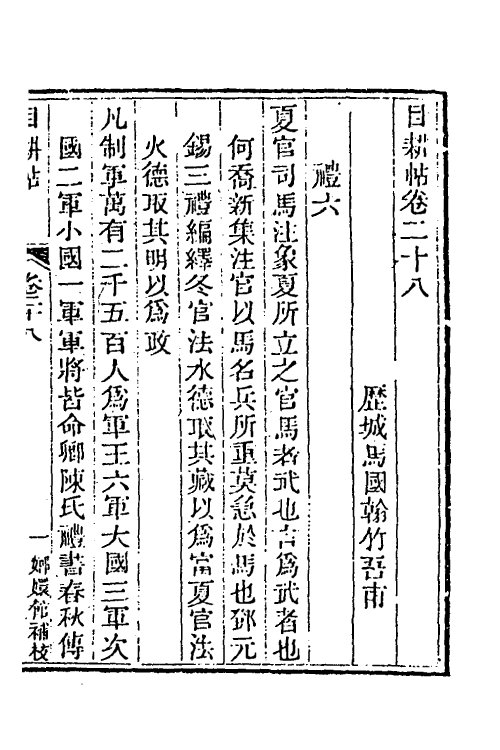 目耕帖卷二十八
歷城馬國翰竹吾甫
禮六
夏官司馬注象夏所立之官馬者武也言爲武者也
何喬新集注官以馬名兵所重莫急於馬也鄧元
錫三禮編繹冬官法水德取其藏以爲富夏官法
火德取其明以爲政
凡制軍萬有二千五百人爲軍王六軍大國三軍次
國二軍小國一軍軍將皆命卿陳氏禮書春秋傳
目耕帖
卷二十八
一
嫏嬛館補校